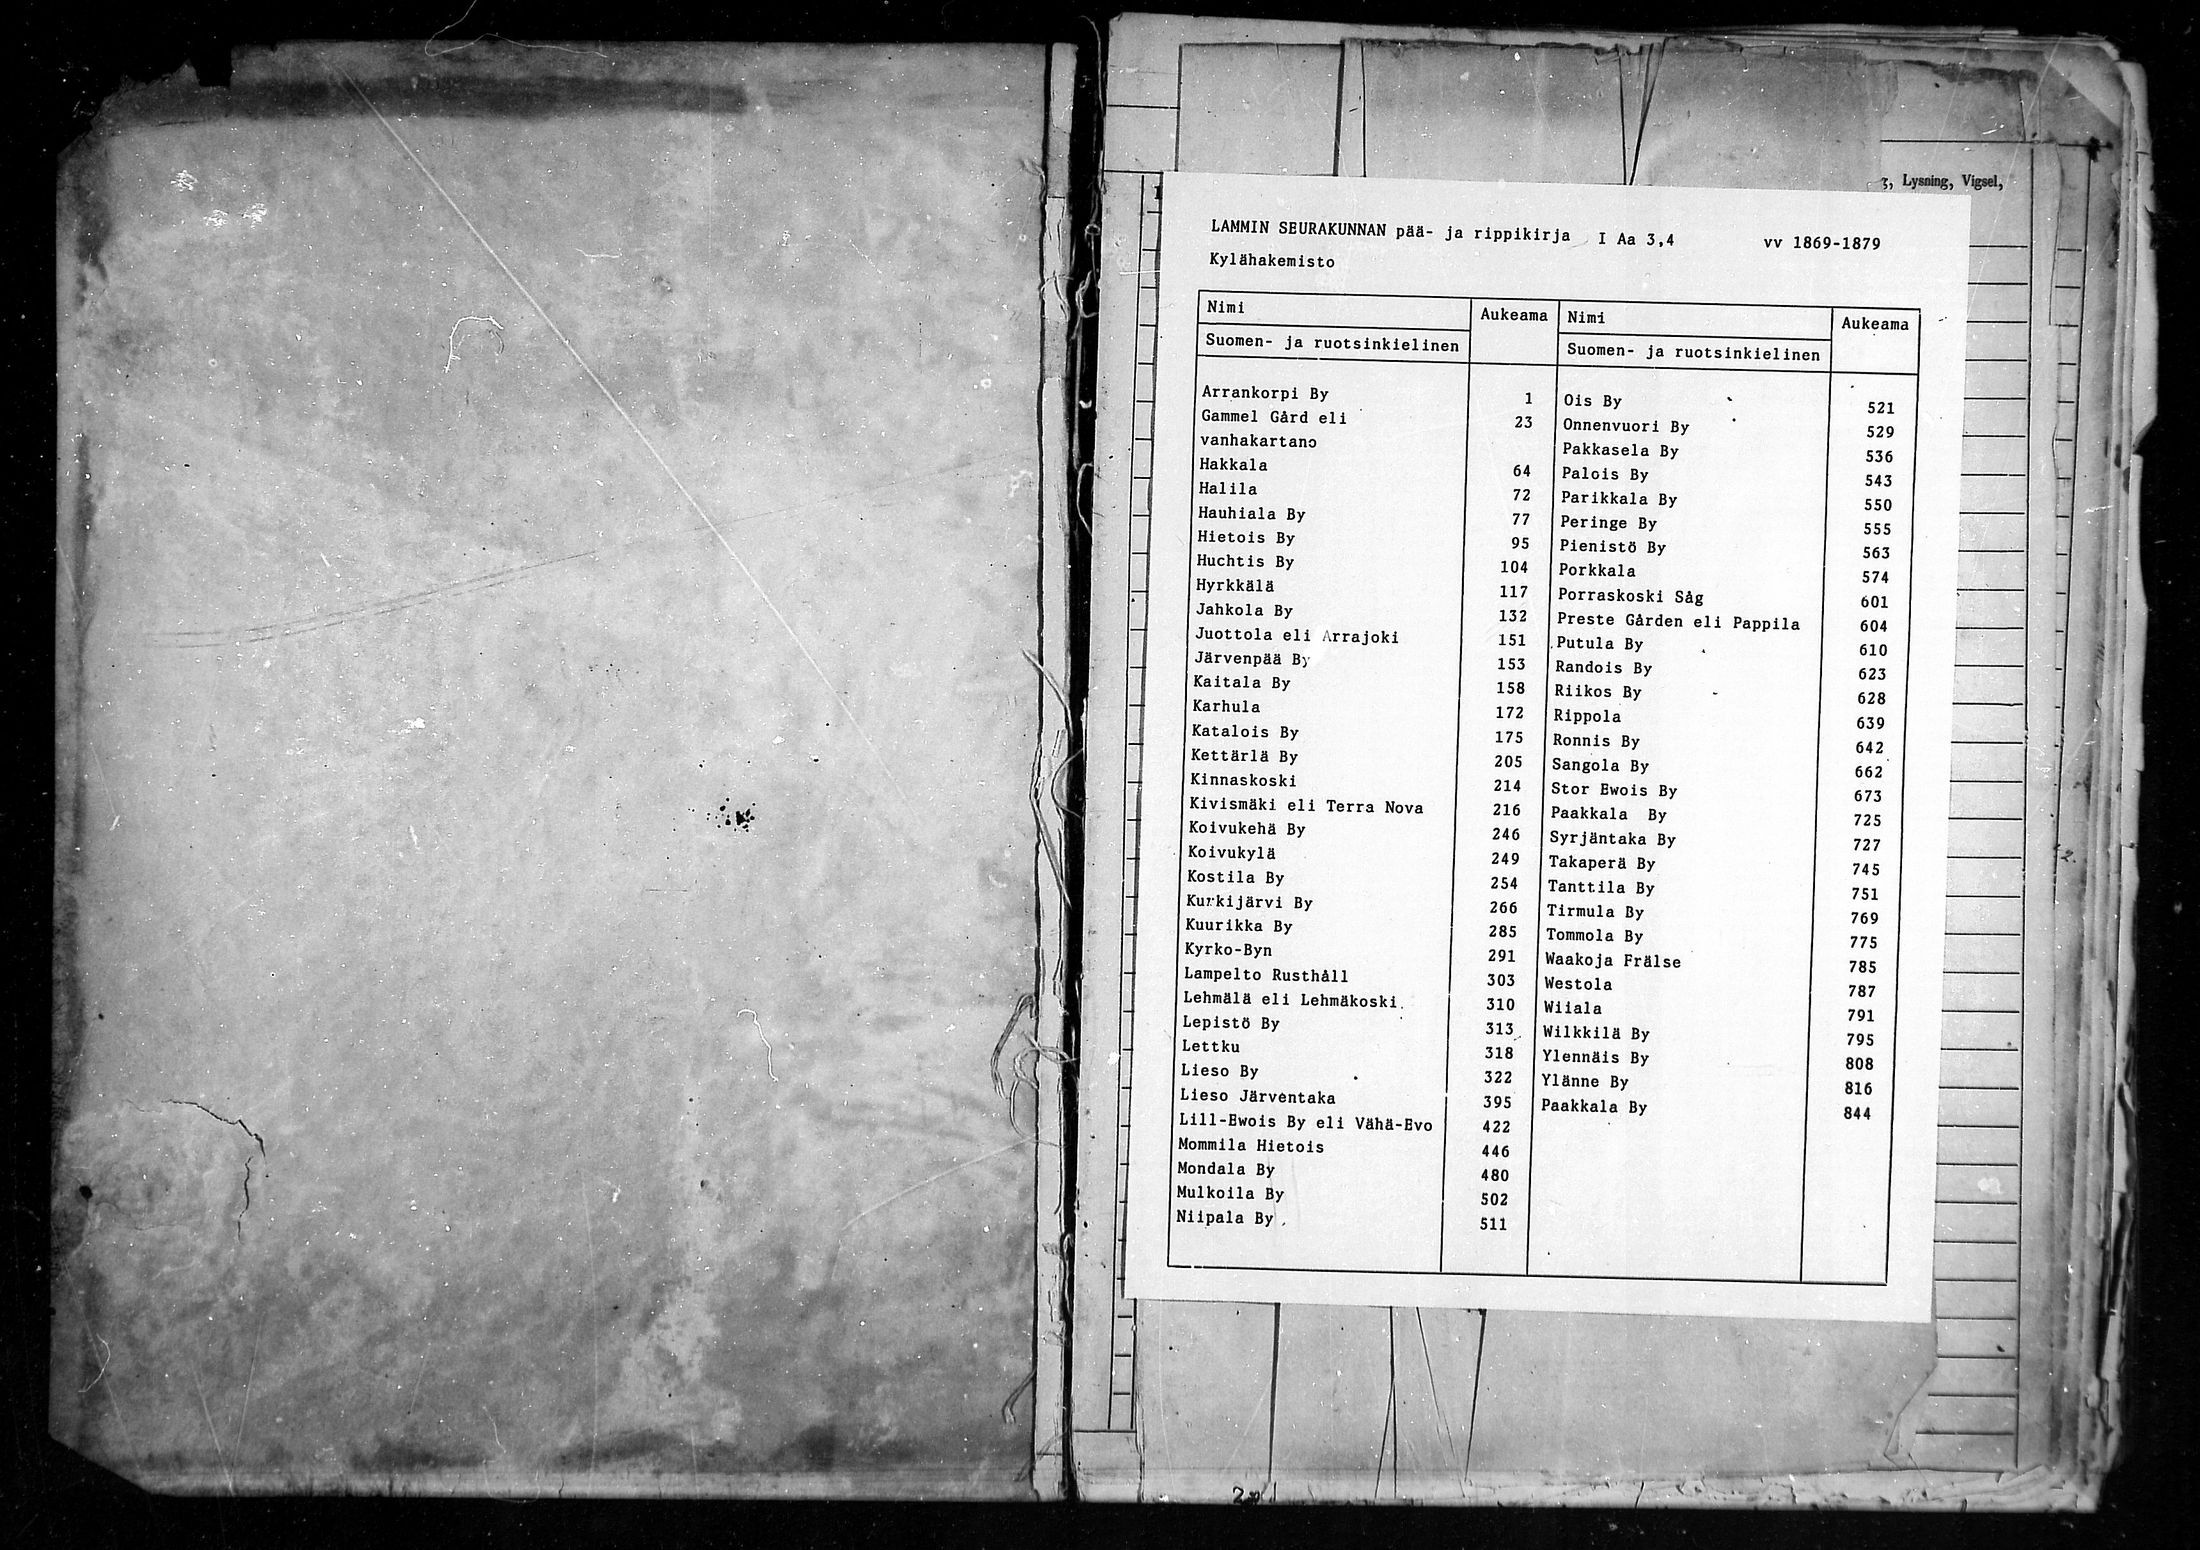 g, Lysning, Vigsel,
LAMMIN SEURAKUNNAN pää- ja rippikirja I Aa 3,4 vv 1869-1879
Kylähakemisto
Nimi Aukeama Nimi Aukeama
Suomen- ja ruotsinkielinen Suomen- ja ruotsinkielinen
Arrankorpi By 1 Ois By 521
Gammel Gård eli 23 Onnenvuori By 529
vanhakartano Pakkasela By 536
Hakkala 64 Palois By 543
Halila 72 Parikkala By 550
Hauhiala By 77 Peringe By 555
Hietois By 95 Pienistö By 563
Huchtis By 104 Porkkala 574
Hyrkkälä 117 Porraskoski Såg 601
Jahkola By 132 Preste Gården eli Pappila 604
Juottola eli Arrajoki 151 Putula By 610
Järvenpää By 153 Randois By 623
Kaitala By 158 Riikos By 628
Karhula 172 Rippola 639
Katalois By 175 Ronnis By 642
Kettärlä By 205 Sangola By 662
Kinnaskoski 214 Stor Ewois By 673
Kivismäki eli Terra Nova 216 Paakkala By 725
Koivukehä By 246 Syrjäntaka By 727
Koivukylä 249 Takaperä By 745
Kostila By 254 Tanttila By 751
Kurkijärvi By 266 Tirmula By 769
Kuurikka By 285 Tommola By 775
Kyrko-Byn 291 Waakoja Frälse 785
Lampelto Rusthåll 303 Westola 787
Lehmälä eli Lehmäkoski 310 Wiiala 791
Lepistö By 313 Wilkkilä By 795
Lettku 318 Ylennäis By 808
Lieso By 322 Ylänne By 816
Lieso Järventaka 395 Paakkala By 844
Lill-Ewois By eli Vähä-Evo 422
Mommila Hietois 446
Mondala By 480
Mulkoila By 502
Niipala By 511